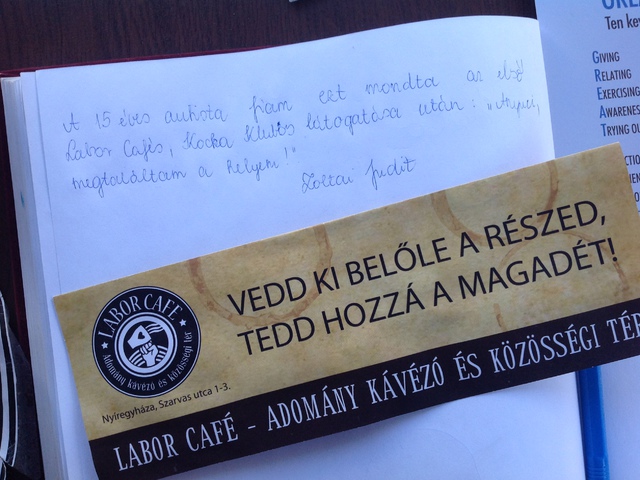 A 15 éves autista fiam ezt mondta az első
Labor Cafés, Kocka Klubos látogatása után: „Anyu,
megtaláltam a helyem!"
Zoltai Judit
VEDD KI BELŐLE A RÉSZED,
TEDD HOZZÁ A MAGADÉT!
LABOR CAFÉ
Adomány kávézó és közösségi tér
Nyíregyháza, Szarvas utca 1-3.
LABOR CAFÉ - ADOMÁNY KÁVÉZÓ ÉS KÖZÖSSÉGI TÉR
Ten
GIVING
RELATING
EXERCISING
AWARENESS
TRYING OU